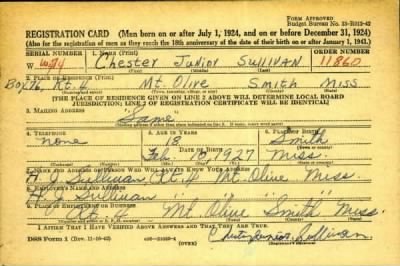 FORM APPROVED
Budget Bureau No. 33-R012-42
REGISTRATION CARD (Men born on or after July 1, 1924, and on or before December 31, 1924)
(Also for the registration of men as they reach the 18th anniversary of the date of their birth on or after January 1, 1943.)
SERIAL NUMBER 1. NAME (Print) ORDER NUMBER
W 574 Chester Junior Sullivan 11860
2. PLACE OF RESIDENCE (Print)
Box 76, Rt. 4 Mt. Olive Smith Miss
[THE PLACE OF RESIDENCE GIVEN ON LINE 2 ABOVE WILL DETERMINE LOCAL BOARD
JURISDICTION; LINE 2 OF REGISTRATION CERTIFICATE WILL BE IDENTICAL]
3. MAILING ADDRESS
Same
4. TELEPHONE 5. AGE IN YEARS 6. PLACE OF BIRTH
none 18 Smith
DATE OF BIRTH
Feb. 10, 1927 Miss.
7. NAME AND ADDRESS OF PERSON WHO WILL ALWAYS KNOW YOUR ADDRESS
H. J. Sullivan Rt. 4 Mt. Olive Miss.
8. EMPLOYER'S NAME AND ADDRESS
H. J. Sullivan " " " " "
9. PLACE OF EMPLOYMENT OR BUSINESS
Rt. 4 Mt. Olive Smith Miss.
I AFFIRM THAT I HAVE VERIFIED ABOVE ANSWERS AND THAT THEY ARE TRUE.
DSS Form 1 (Rev. 11-16-42) Chester Junior Sullivan